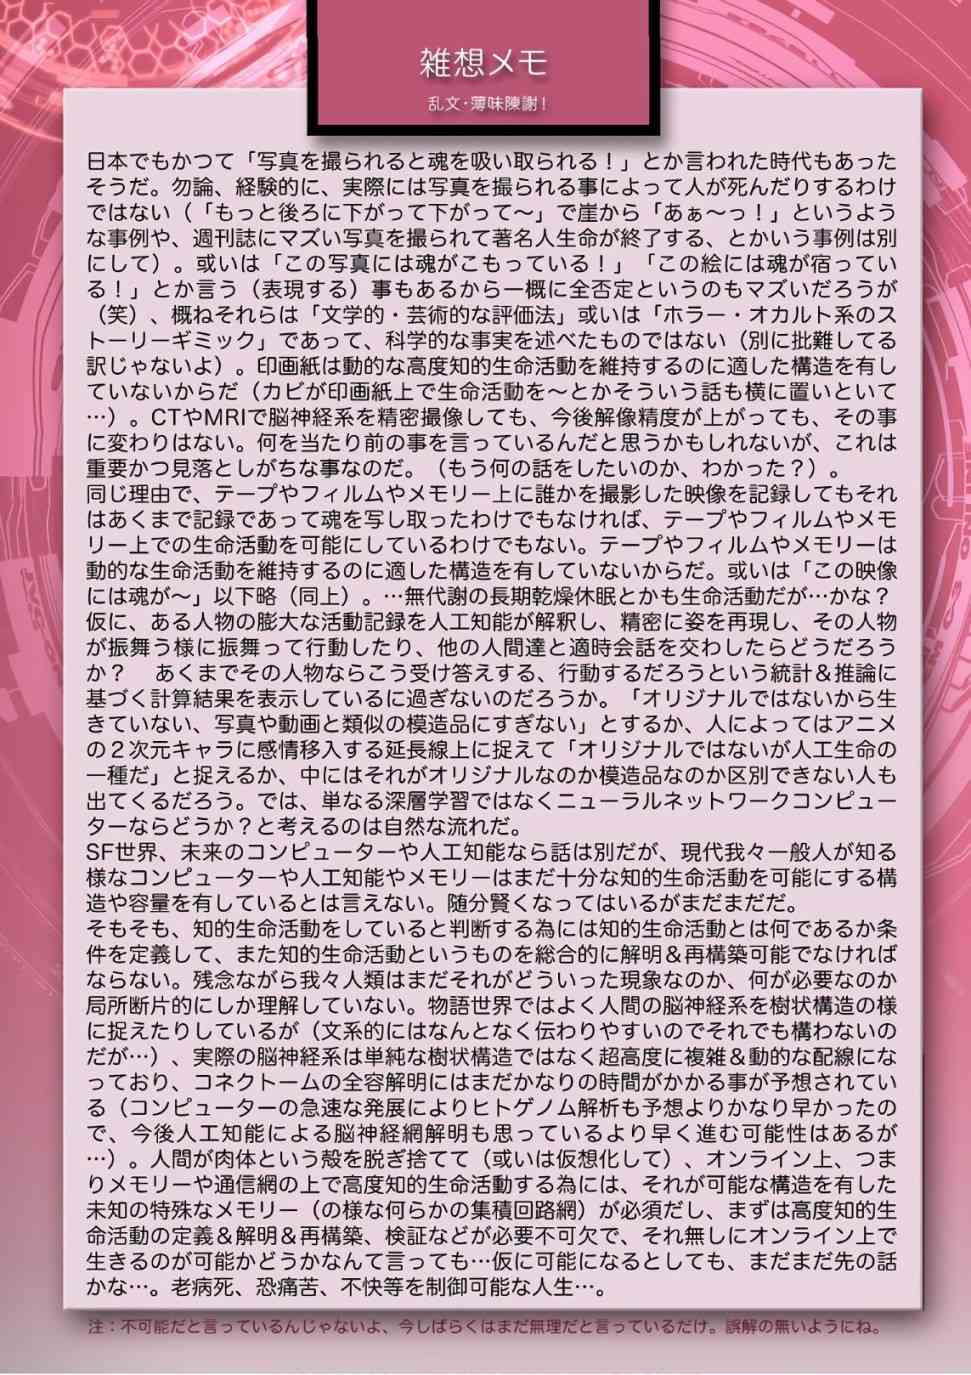 雑想メモ
乱文・薄味陳謝！
日本でもかつて「写真を撮られると魂を吸い取られる！」とか言われた時代もあった
そうだ。勿論、経験的に、実際には写真を撮られる事によって人が死んだりするわけ
ではない（「もっと後ろに下がって下がって〜」で崖から「あぁ〜っ！」というよう
な事例や、週刊誌にマズい写真を撮られて著名人生命が終了する、とかいう事例は別
にして）。或いは「この写真には魂がこもっている！」「この絵には魂が宿ってい
る！」とか言う（表現する）事もあるから一概に全否定というのもマズいだろうが
（笑）、概ねそれらは「文学的・芸術的な評価法」或いは「ホラー・オカルト系のス
トーリーギミック」であって、科学的な事実を述べたものではない（別に批難してる
訳じゃないよ）。印画紙は動的な高度知的生命活動を維持するのに適した構造を有し
ていないからだ（カビが印画紙上で生命活動を〜とかそういう話も横に置いといて
…）。CTやMRIで脳神経系を精密撮像しても、今後解像精度が上がっても、その事
に変わりはない。何を当たり前の事を言っているんだと思うかもしれないが、これは
重要かつ見落としがちな事なのだ。（もう何の話をしたいのか、わかった？）。
同じ理由で、テープやフィルムやメモリー上に誰かを撮影した映像を記録してもそれ
はあくまで記録であって魂を写し取ったわけでもなければ、テープやフィルムやメモ
リー上での生命活動を可能にしているわけでもない。テープやフィルムやメモリーは
動的な生命活動を維持するのに適した構造を有していないからだ。或いは「この映像
には魂が〜」以下略（同上）。…無代謝の長期乾燥休眠とかも生命活動だが…かな？
仮に、ある人物の膨大な活動記録を人工知能が解釈し、精密に姿を再現し、その人物
が振舞う様に振舞って行動したり、他の人間達と適時会話を交わしたらどうだろう
か？　あくまでその人物ならこう受け答えする、行動するだろうという統計＆推論に
基づく計算結果を表示しているに過ぎないのだろうか。「オリジナルではないから生
きていない、写真や動画と類似の模造品にすぎない」とするか、人によってはアニメ
の２次元キャラに感情移入する延長線上に捉えて「オリジナルではないが人工生命の
一種だ」と捉えるか、中にはそれがオリジナルなのか模造品なのか区別できない人も
出てくるだろう。では、単なる深層学習ではなくニューラルネットワークコンピュー
ターならどうか？と考えるのは自然な流れだ。
SF世界、未来のコンピューターや人工知能なら話は別だが、現代我々一般人が知る
様なコンピューターや人工知能やメモリーはまだ十分な知的生命活動を可能にする構
造や容量を有しているとは言えない。随分賢くなってはいるがまだまだだ。
そもそも、知的生命活動をしていると判断する為には知的生命活動とは何であるか条
件を定義して、また知的生命活動というものを総合的に解明＆再構築可能でなければ
ならない。残念ながら我々人類はまだそれがどういった現象なのか、何が必要なのか
局所断片的にしか理解していない。物語世界ではよく人間の脳神経系を樹状構造の様
に捉えたりしているが（文系的にはなんとなく伝わりやすいのでそれでも構わないの
だが…）、実際の脳神経系は単純な樹状構造ではなく超高度に複雑＆動的な配線にな
っており、コネクトームの全容解明にはまだかなりの時間がかかる事が予想されてい
る（コンピューターの急速な発展によりヒトゲノム解析も予想よりかなり早かったの
で、今後人工知能による脳神経網解明も思っているより早く進む可能性はあるが
…）。人間が肉体という殻を脱ぎ捨てて（或いは仮想化して）、オンライン上、つま
りメモリーや通信網の上で高度知的生命活動する為には、それが可能な構造を有した
未知の特殊なメモリー（の様な何らかの集積回路網）が必須だし、まずは高度知的生
命活動の定義＆解明＆再構築、検証などが必要不可欠で、それ無しにオンライン上で
生きるのが可能かどうかなんて言っても…仮に可能になるとしても、まだまだ先の話
かな…。老病死、恐痛苦、不快等を制御可能な人生…。
注：不可能だと言っているんじゃないよ、今しばらくはまだ無理だと言っているだけ。誤解の無いようにね。